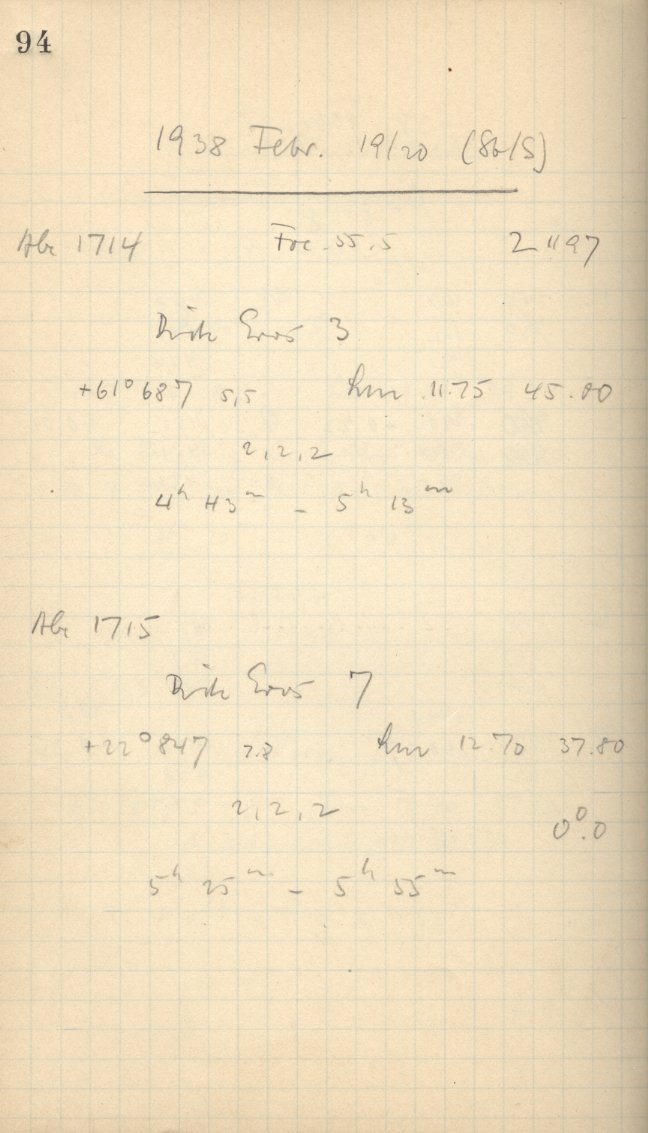 94
1938 Febr. 19/20 (Sb/S)
Abr 1714 Foc. 55.5 2 1197
Eros 3
+61° 687 5,5 11.75 45.00
2, 2, 2
4h 43m - 5h 13m
Abr 1715
Eros 7
+22° 847 7.8 12.70 37.80
2, 2, 2
0°.0
5h 25m - 5h 55m